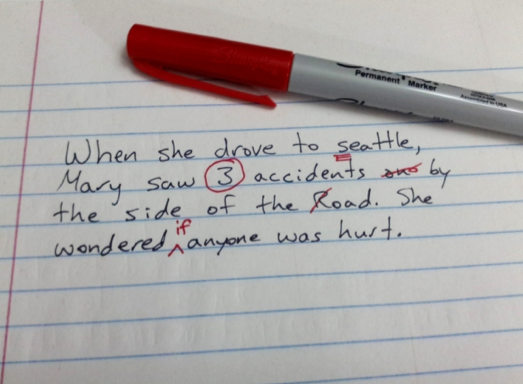 Permanent Marker
When she drove to seattle,
Mary saw 3 accidents by
the side of the Road. She
if
wondered ^ anyone was hurt.